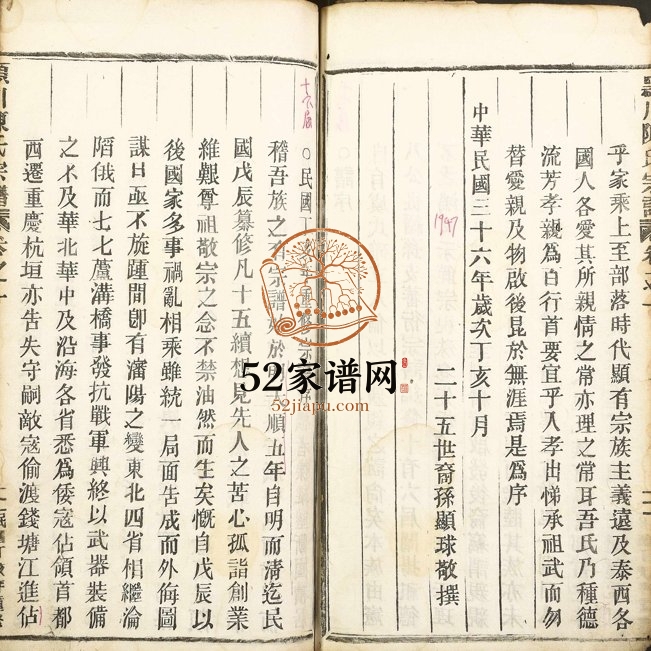 乎家乘上至部落時代顯有宗族主義遠及泰西各
國人各愛其所親情之常亦理之常耳吾氏乃種德
流芳孝親為自行首要宜乎入孝出悌承祖武而勿
替愛親及物啟後昆於無涯焉是為序
中華民國三十六年歲次丁亥十月
1947
二十五世裔孫顯球敬撰
潁川陳氏宗譜
卷之一
○民國丁
重修宗
序
稽吾族之有宗譜
於
順五年自明而清迄民
國戊辰纂修凡十五續想見先人之苦心孤詣創業
維艱尊祖敬宗之念不禁油然而生矣慨自戊辰以
後國家多事禍亂相乘雖統一局面告成而外侮圖
謀日亟不旋踵間卽有瀋陽之變東北四省相繼淪
陷俄而七七蘆溝橋事發抗戰軍興終以武器裝備
之不及華北華中及沿海各省悉為倭寇佔領首都
西遷重慶杭垣亦告失守嗣敵寇偷渡錢塘江進佔
52家谱网
52jiapu.com